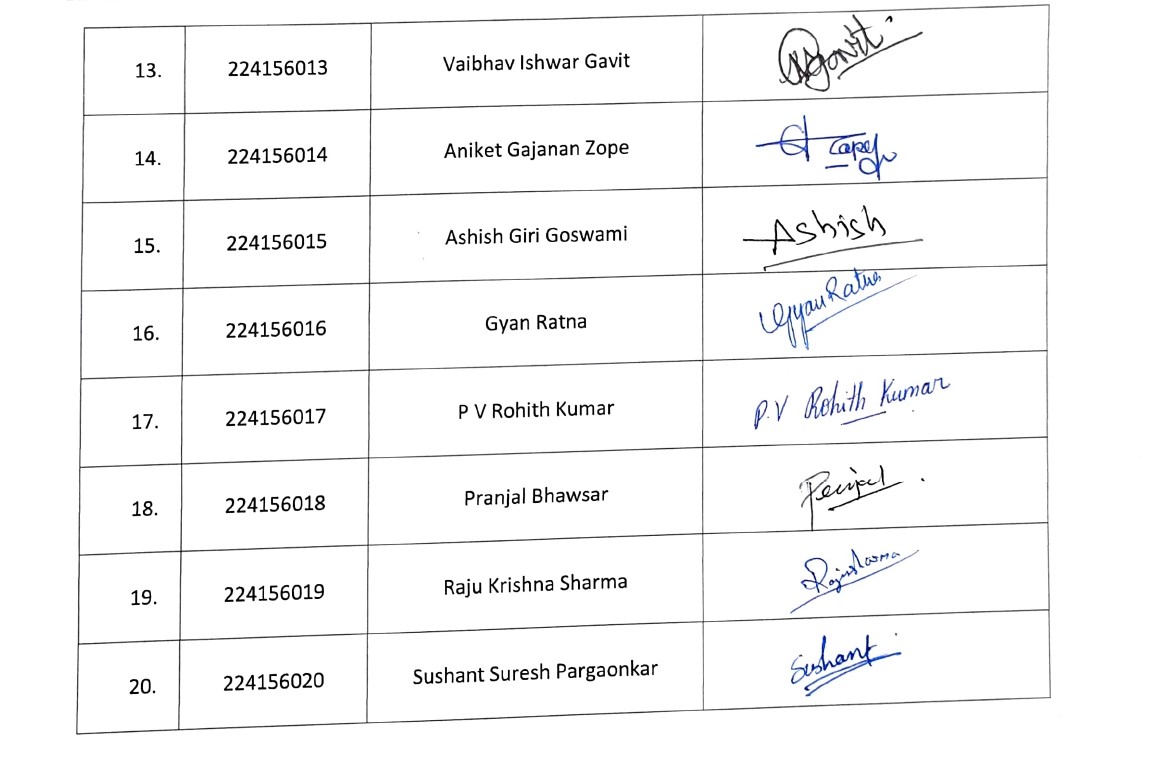 13. 224156013 Vaibhav Ishwar Gavit
14. 224156014 Aniket Gajanan Zope
15. 224156015 Ashish Giri Goswami Ashish
16. 224156016 Gyan Ratna Gyan Ratna
17. 224156017 P V Rohith Kumar P.V Rohith Kumar
18. 224156018 Pranjal Bhawsar
19. 224156019 Raju Krishna Sharma
20. 224156020 Sushant Suresh Pargaonkar Sushant